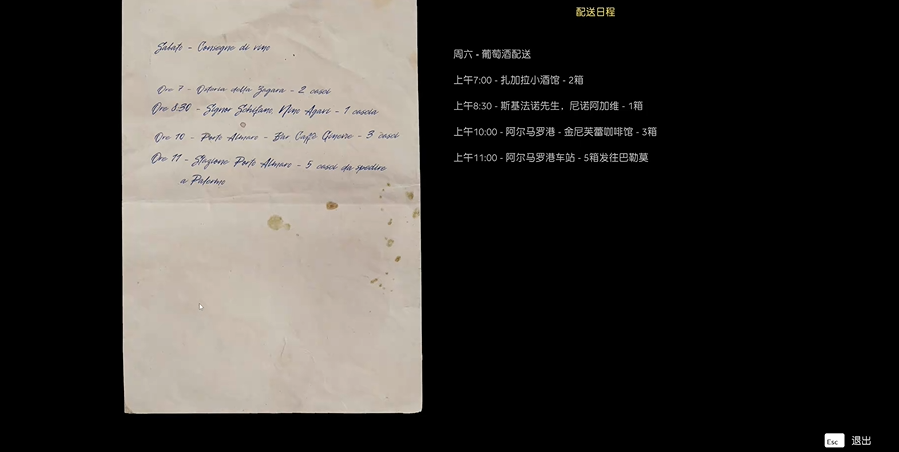 配送日程
Sabato - Consegne di vino
Ore 7 - Osteria della Zagara - 2 casci
Ore 8:30 - Signor Schifano, Nino Agavi - 1 cascia
Ore 10 - Porto Almaro - Bar Caffè Ginevre - 3 casci
Ore 11 - Stazione Porto Almaro - 5 casci da spedire
a Palermo
周六 - 葡萄酒配送
上午7:00 - 扎加拉小酒馆 - 2箱
上午8:30 - 斯基法诺先生，尼诺阿加维 - 1箱
上午10:00 - 阿尔马罗港 - 金尼芙蕾咖啡馆 - 3箱
上午11:00 - 阿尔马罗港车站 - 5箱发往巴勒莫
Esc 退出